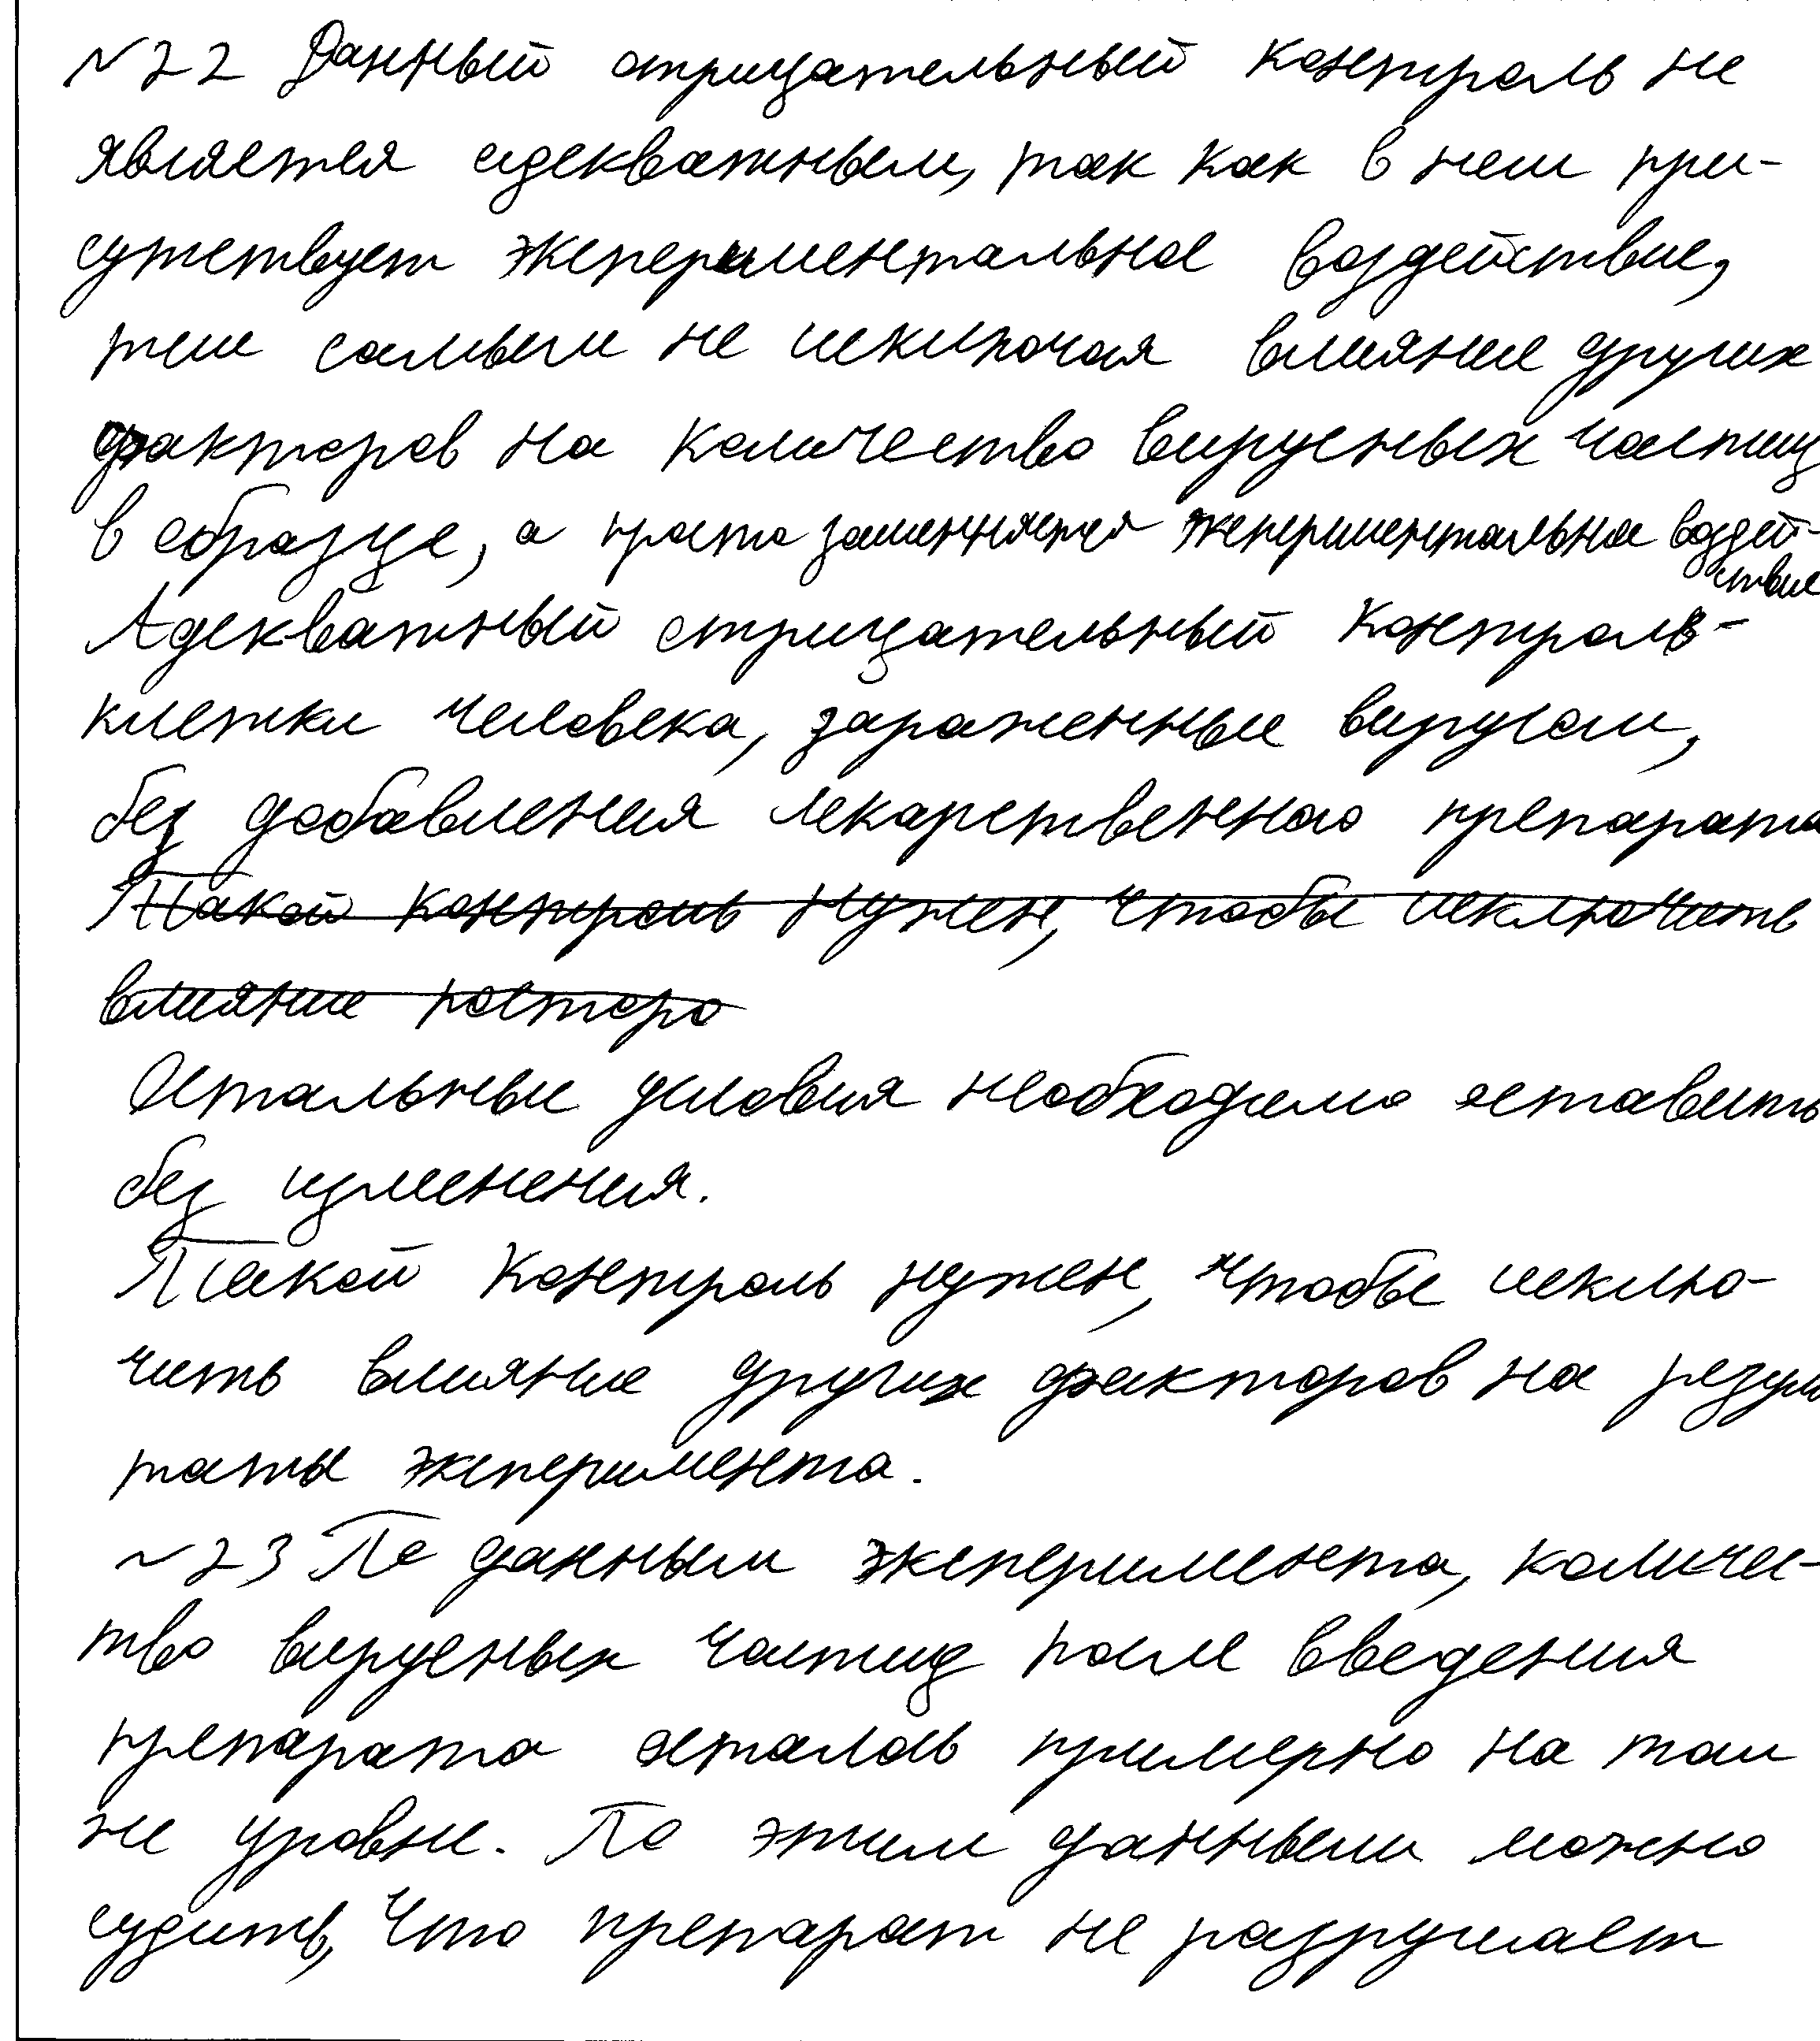 №22 Данный отрицательный контроль не
является адекватным, так как в нем при-
сутствует экспериментальное воздействие,
тем самым не исключая влияние других
факторов на количество вирусных частиц
в образце, а просто заменяется экспериментальное воздей-
ствие
Адекватный отрицательный контроль-
клетки человека, зараженные вирусом,
без добавления лекарственного препарата
Такой контроль нужен, чтобы исключить
влияние посторо
Остальные условия необходимо оставить
без изменения.
Такой контроль нужен, чтобы исклю-
чить влияние других факторов на резуль
таты эксперимента.
№23 По данным эксперимента, количес-
тво вирусных частиц после введения
препарата осталось примерно на том
же уровне. По этим данным можно
судить, что препарат не разрушает